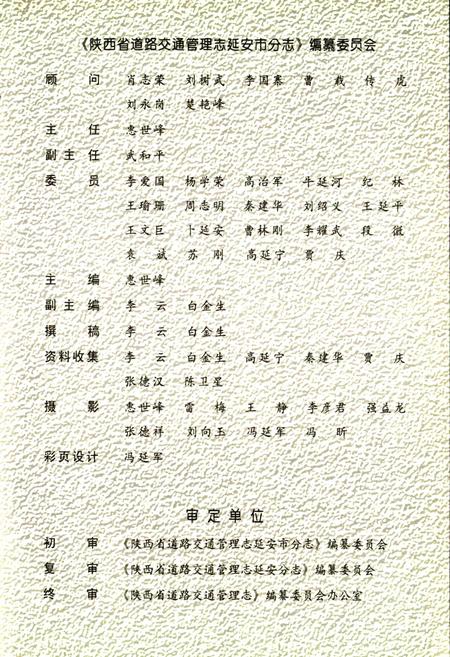 《陕西省道路交通管理志延安市分志》编纂委员会
顾 问 肖志荣 刘树武 李国寨 曹 载 传 虎
刘永岗 楚艳峰
主 任 惠世峰
副主任 武和平
委 员 李爱国 杨学荣 高治军 牛延河 纪 林
王瑜珊 周志明 秦建华 刘绍义 王延平
王文巨 卜延安 曹林刚 李耀武 段 微
袁 斌 苏 刚 高延宁 贾 庆
主 编 惠世峰
副主编 李 云 白金生
撰 稿 李 云 白金生
资料收集 李 云 白金生 高延宁 秦建华 贾 庆
张德汉 陈卫星
摄 影 惠世峰 雷 梅 王 静 李彦君 强益龙
张德祥 刘向玉 冯延军 冯 昕
彩页设计 冯延军
审定单位
初 审 《陕西省道路交通管理志延安市分志》编纂委员会
复 审 《陕西省道路交通管理志延安分志》编纂委员会
终 审 《陕西省道路交通管理志》编纂委员会办公室